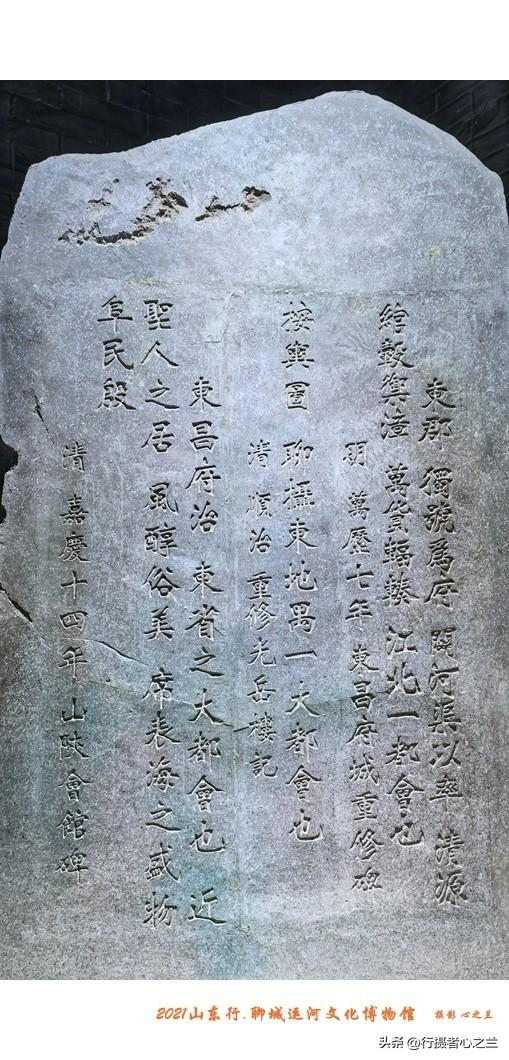 東郡 獨號爲府 開河渠以率 清源
綰轂衛漳 萬貨輻輳 江北一都會也
明 萬歷七年 東昌府城重修碑
按輿圖 聊攝東地 禺一大都會也
清 順治 重修光岳樓記
東昌府治 東省之大都會也 近
聖人之居 風醇俗美 席表海之盛 物
阜民殷
清 嘉慶十四年 山陝會館碑
2021山东行.聊城运河文化博物馆 摄影 心之兰
头条 @行摄者心之兰